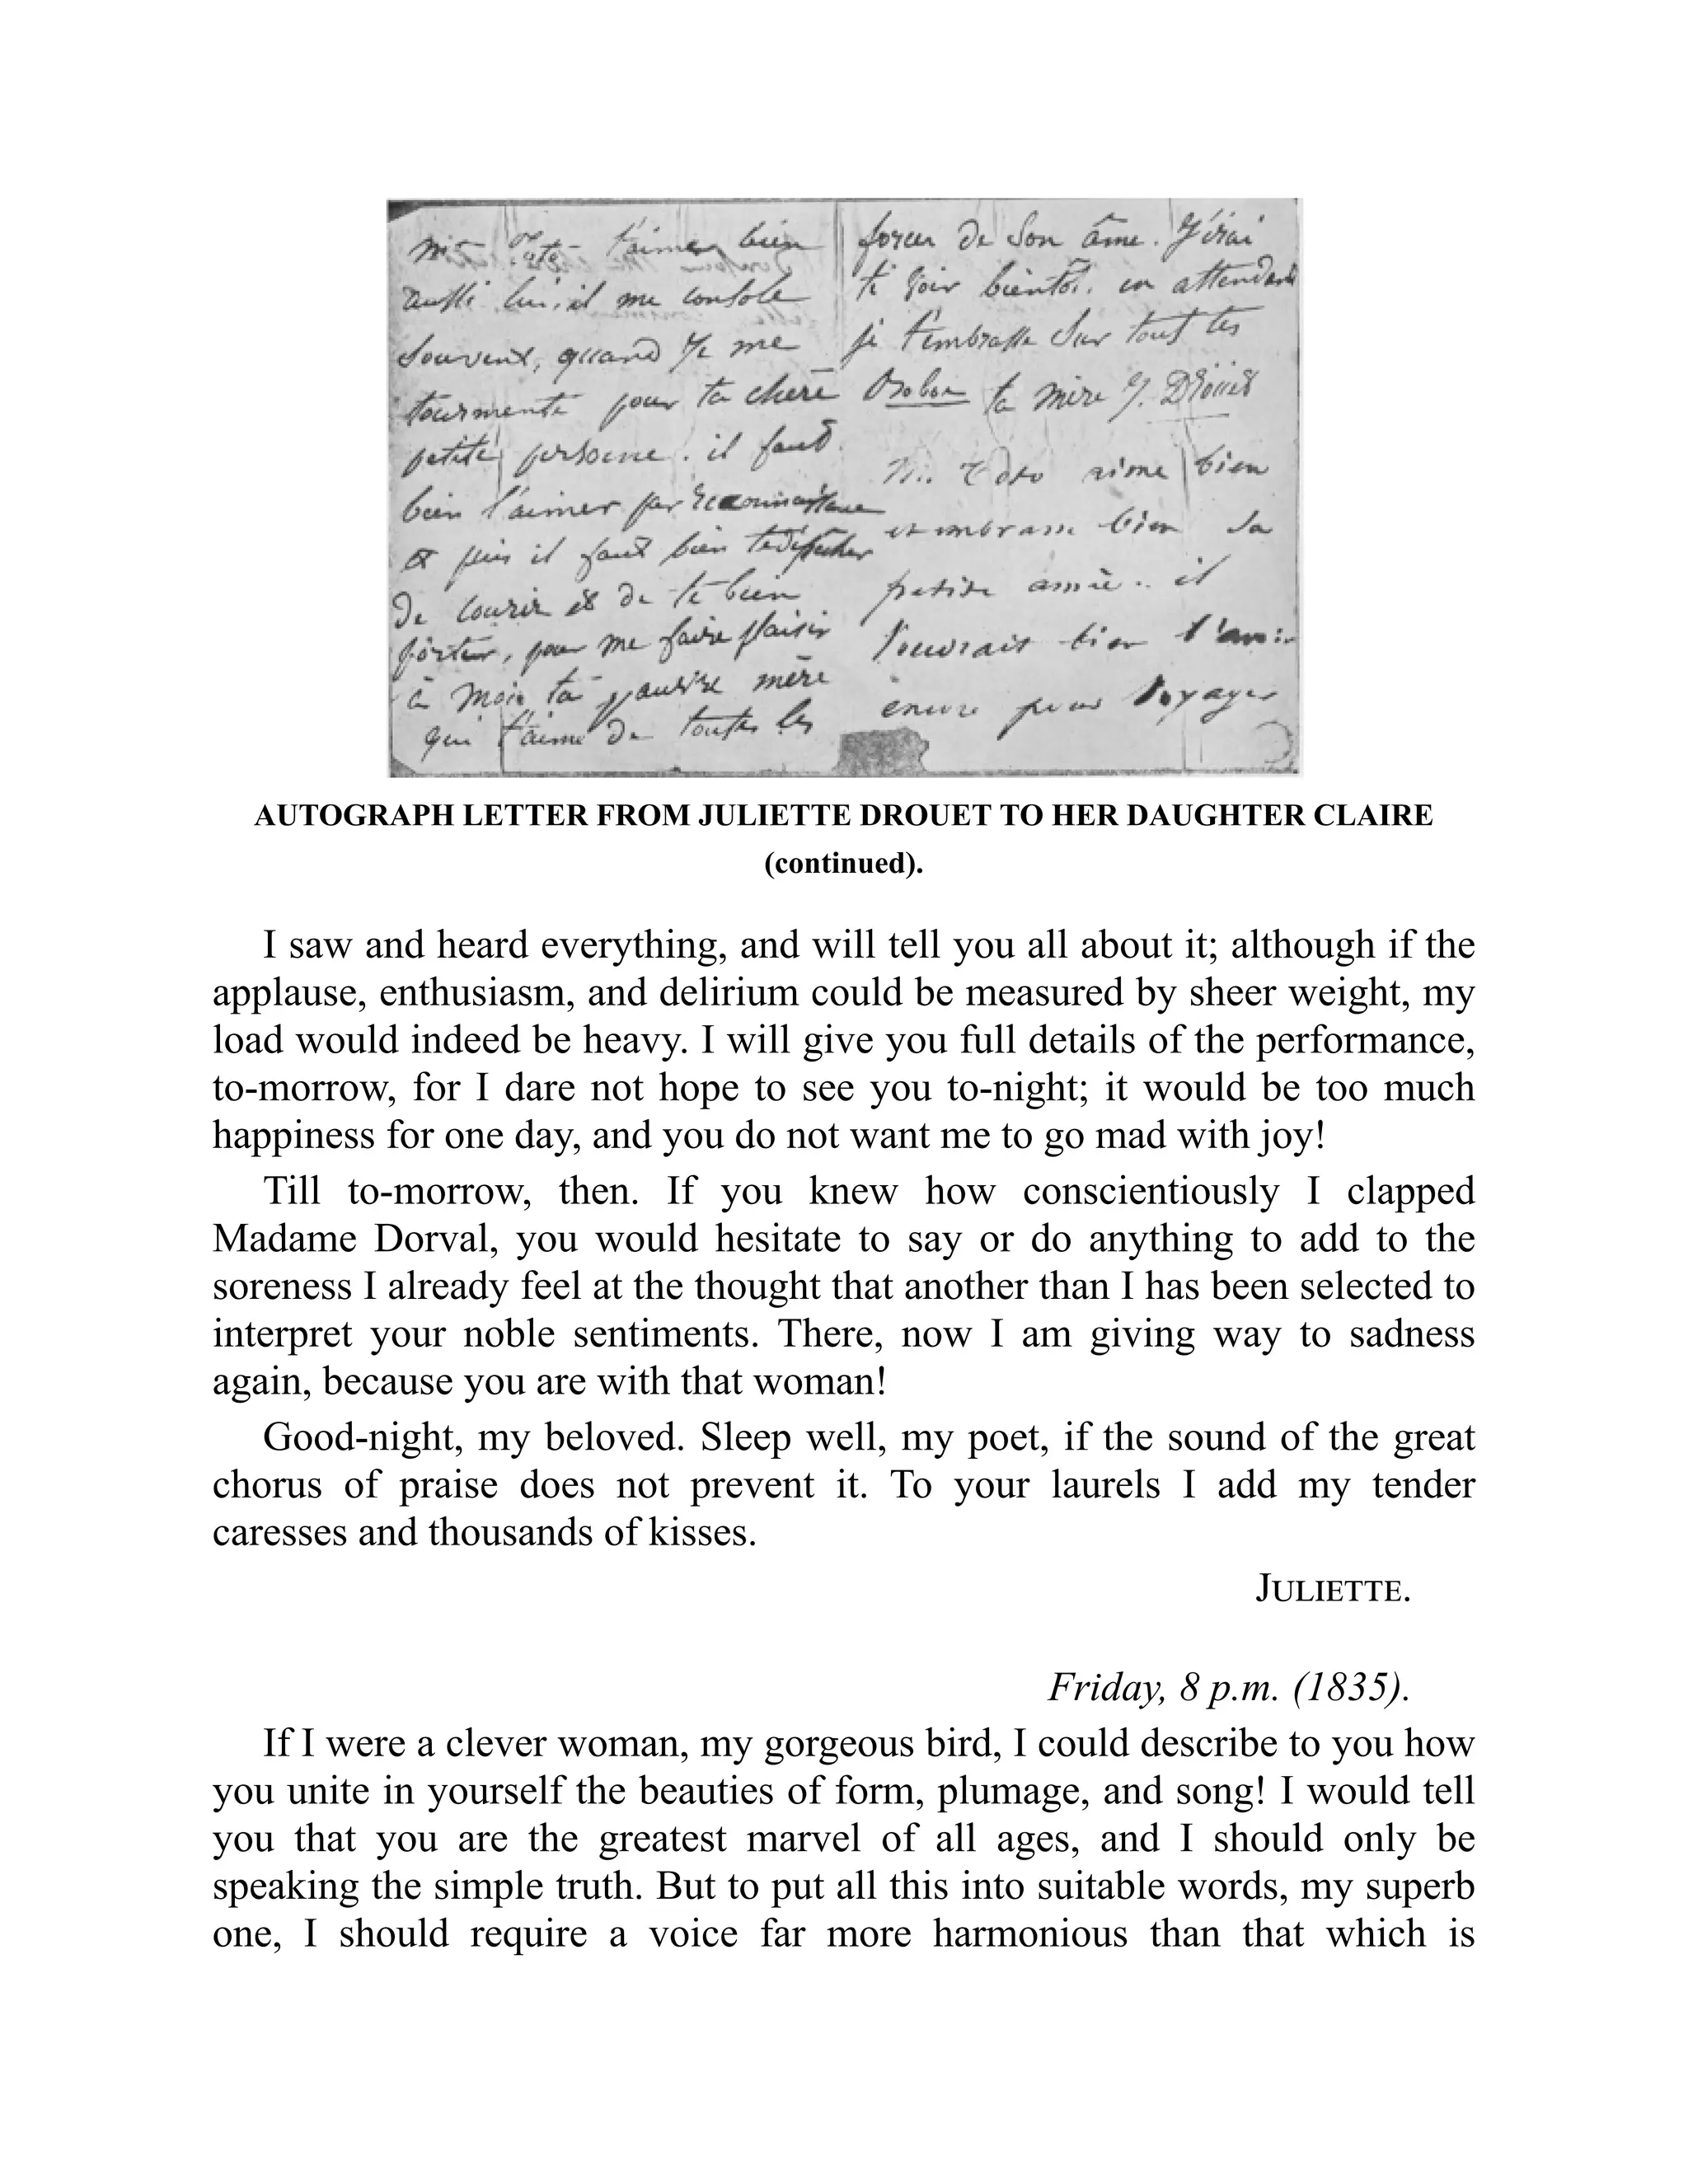 aussi lui, il me console
souvent, quand je me
tourmente pour ta chère
petite personne. il faut
bien l'aimer par reconnaissance
et puis il faut bien te dépêcher
de courir et de te bien
porter, pour me faire plaisir
à moi ta pauvre mère
qui t'aime de toutes les
forces de son âme. J'irai
te voir bientôt. en attendant
je t'embrasse sur tout tes
ta mère J. Drouet
aime bien
bien sa
petite amie.. il
voudrait bien
encore pour voyager
AUTOGRAPH LETTER FROM JULIETTE DROUET TO HER DAUGHTER CLAIRE
(continued).
I saw and heard everything, and will tell you all about it; although if the
applause, enthusiasm, and delirium could be measured by sheer weight, my
load would indeed be heavy. I will give you full details of the performance,
to-morrow, for I dare not hope to see you to-night; it would be too much
happiness for one day, and you do not want me to go mad with joy!
Till to-morrow, then. If you knew how conscientiously I clapped
Madame Dorval, you would hesitate to say or do anything to add to the
soreness I already feel at the thought that another than I has been selected to
interpret your noble sentiments. There, now I am giving way to sadness
again, because you are with that woman!
Good-night, my beloved. Sleep well, my poet, if the sound of the great
chorus of praise does not prevent it. To your laurels I add my tender
caresses and thousands of kisses.
JULIETTE.
Friday, 8 p.m. (1835).
If I were a clever woman, my gorgeous bird, I could describe to you how
you unite in yourself the beauties of form, plumage, and song! I would tell
you that you are the greatest marvel of all ages, and I should only be
speaking the simple truth. But to put all this into suitable words, my superb
one, I should require a voice far more harmonious than that which is